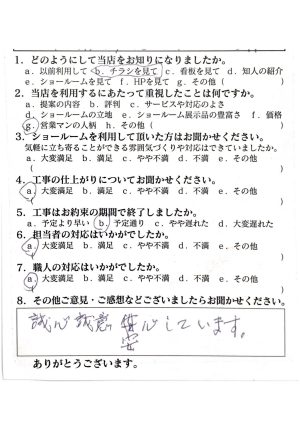 1. どのようにして当店をお知りになりましたか。
a. 以前利用して b. チラシを見て c. 看板を見て d. 知人の紹介
e. ショールームを見て f. HPを見て g. その他 (
2. 当店を利用するにあたって重視したことは何ですか。
a. 提案の内容 b. 評判 c. サービスや対応のよさ
d. ショールームの立地 e. ショールーム展示品の豊富さ f. 価格
g. 営業マンの人柄 h. その他 (
3. ショールームを利用して頂いた方はお聞かせください。
気軽に立ち寄ることができる雰囲気づくりや対応はできていましたか。
a. 大変満足 b. 満足 c. やや不満 d. 不満 e. その他
( )
4. 工事の仕上がりについてお聞かせください。
a. 大変満足 b. 満足 c. やや不満 d. 不満 e. その他
( )
5. 工事はお約束の期間で終了しましたか。
a. 予定より早い b. 予定通り c. やや遅れた d. 大変遅れた
6. 担当者の対応はいかがでしたか。
a. 大変満足 b. 満足 c. やや不満 d. 不満 e. その他
( )
7. 職人の対応はいかがでしたか。
a. 大変満足 b. 満足 c. やや不満 d. 不満 e. その他
( )
8. その他ご意見・ご感想などございましたらお聞かせください。
誠心誠意 安心しています。
ありがとうございます。